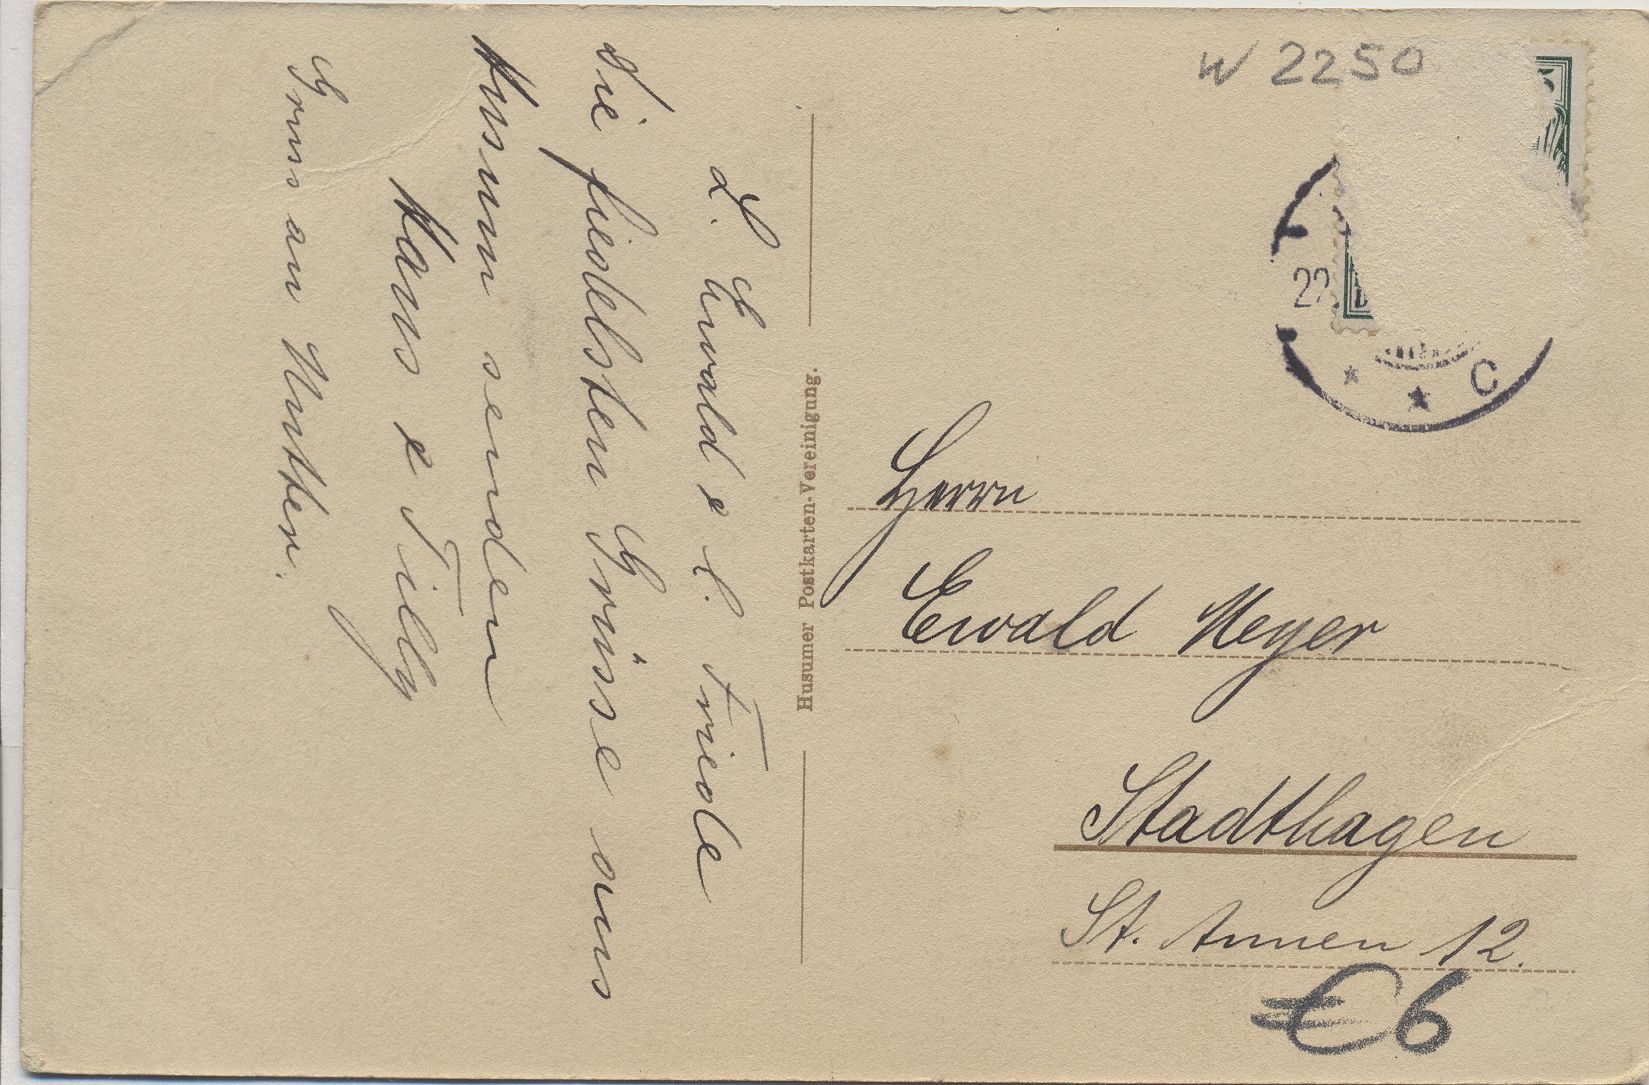 L. Ewald & L. Friede
die fiedelsten Grüsse aus
Husum senden
Hans & Tilly
Gruss an Mutter.
Husumer Postkarten-Vereinigung.
W 2250
22.
* * C
Herrn
Ewald Meyer
Stadthagen
St. Annen 12.
€6